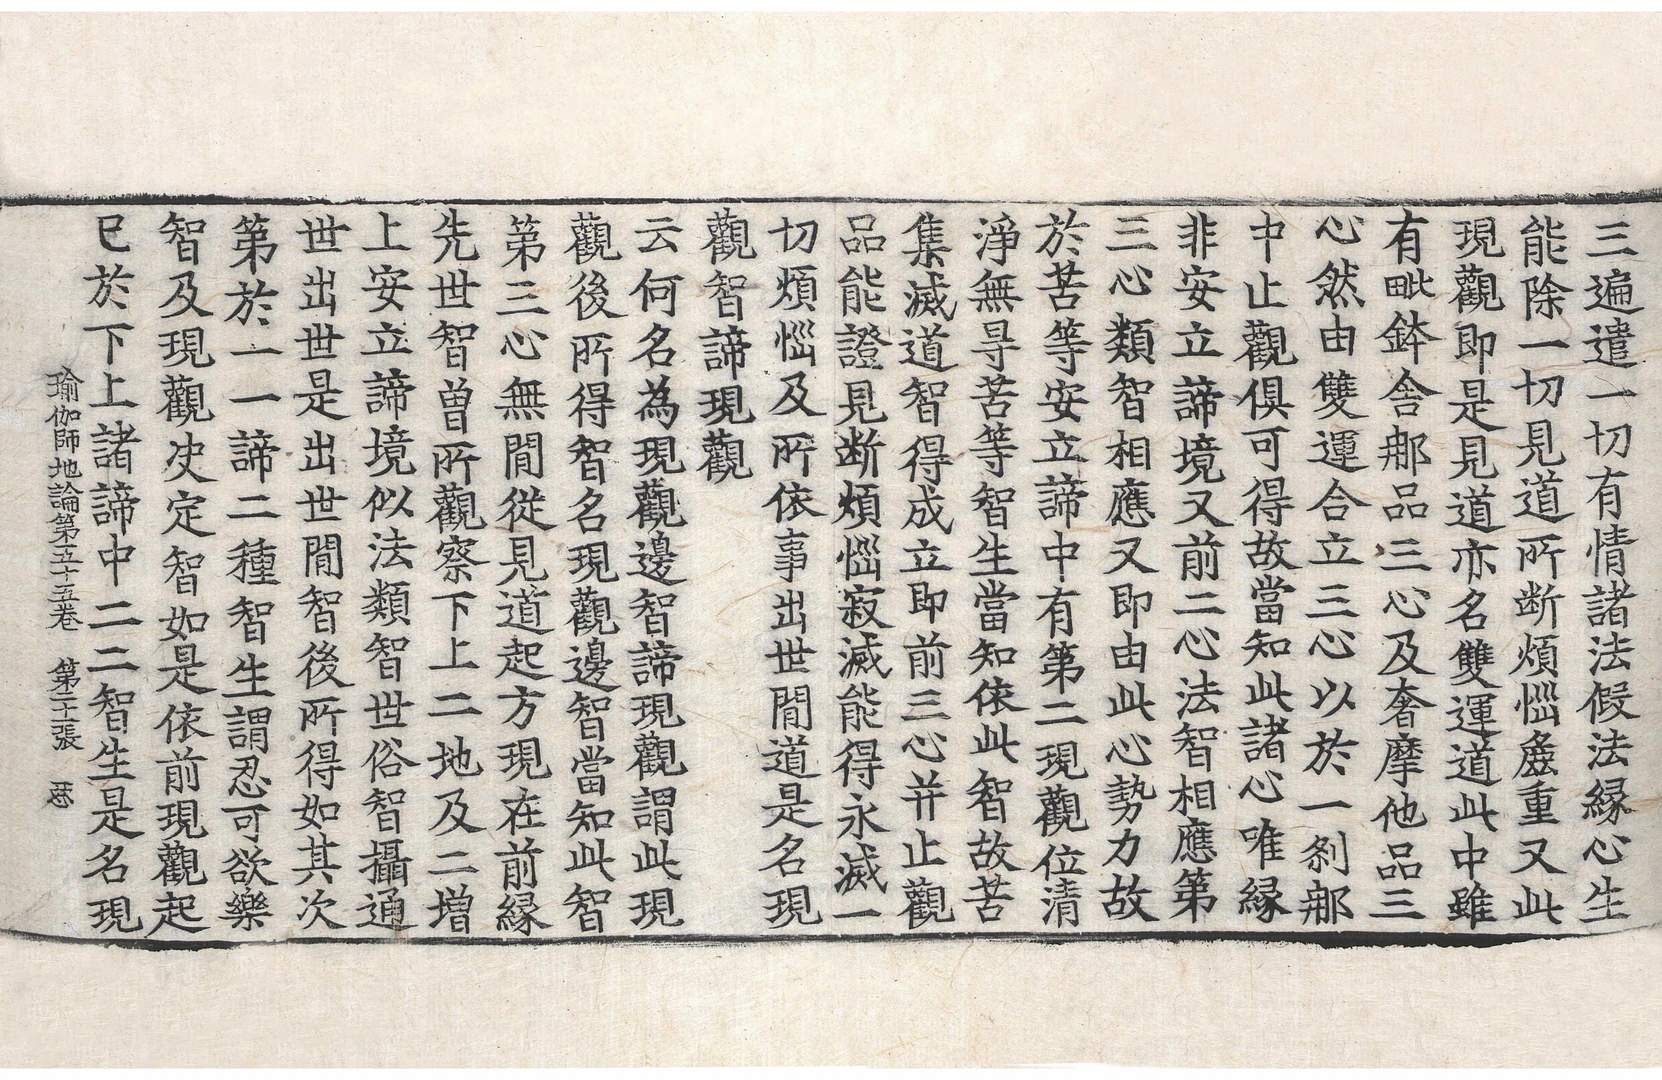 三遍遣一切有情諸法假法緣心生
能除一切見道所断煩惱麁重又此
現觀即是見道亦名雙運道此中雖
有毗鉢舍那品三心及奢摩他品三
心然由雙運合立三心以於一刹那
中止觀俱可得故當知此諸心唯緣
非安立諦境又前二心法智相應第
三心類智相應又即由此心勢力故
於苦等安立諦中有第二現觀位清
淨無㝵苦等智生當知依此智故苦
集滅道智得成立即前三心并止觀
品能證見断煩惱寂滅能得永滅一
切煩惱及所依事出世間道是名現
觀智諦現觀
云何名為現觀邊智諦現觀謂此現
觀後所得智名現觀邊智當知此智
第三心無間從見道起方現在前緣
先世智曾所觀察下上二地及二增
上安立諦境似法類智世俗智攝通
世出世是出世間智後所得如其次
第於一一諦二種智生謂忍可欲樂
智及現觀决定智如是依前現觀起
已於下上諸諦中二二智生是名現
瑜伽師地論第五十五卷 第二十張